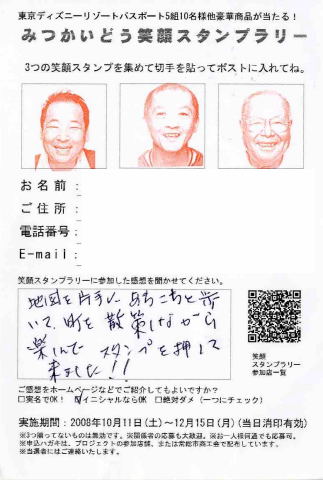 東京ディズニーリゾートパスポート5組10名様他豪華商品が当たる！
みつかいどう笑顔スタンプラリー
3つの笑顔スタンプを集めて切手を貼ってポストに入れてね。
お名前：
ご住所：
電話番号：
E-mail：
笑顔スタンプラリーに参加した感想を聞かせてください。
地図を片手に あちこちと歩
いて、町を散策しながら
楽しんで スタンプを押して
来ました!!
笑顔
スタンプラリー
参加店一覧
ご感想をホームページなどでご紹介してもよいですか？
□実名でOK！ ☑イニシャルならOK □絶対ダメ（一つにチェック）
実施期間：2008年10月11日(土)～12月15日(月)（当日消印有効）
※3つ揃ってないものは無効です。※関係者の応募も大歓迎。※お一人様何通でも応募可。
※申込ハガキは、プロジェクトの参加店舗、または常総市商工会で配布しています。
※当選者にはご連絡いたします。